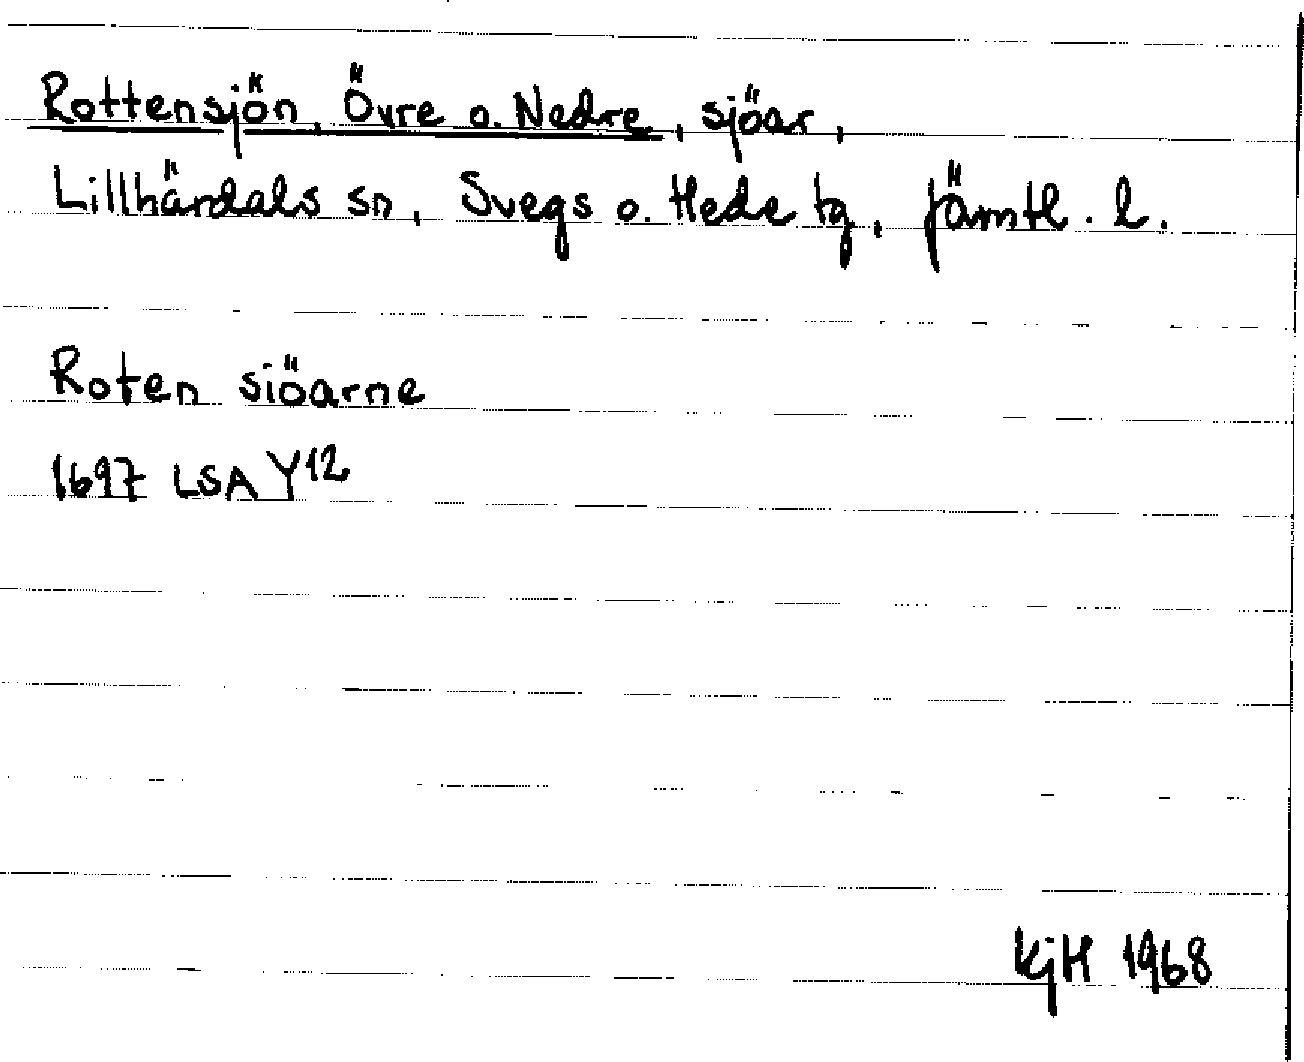 Rottensjön, Övre o. Nedre, sjöar,
Lillhärdals sn, Svegs o. Hede tg, Jämtl. l.
Roten siöarne
1697 LSA Y12
KjH 1968